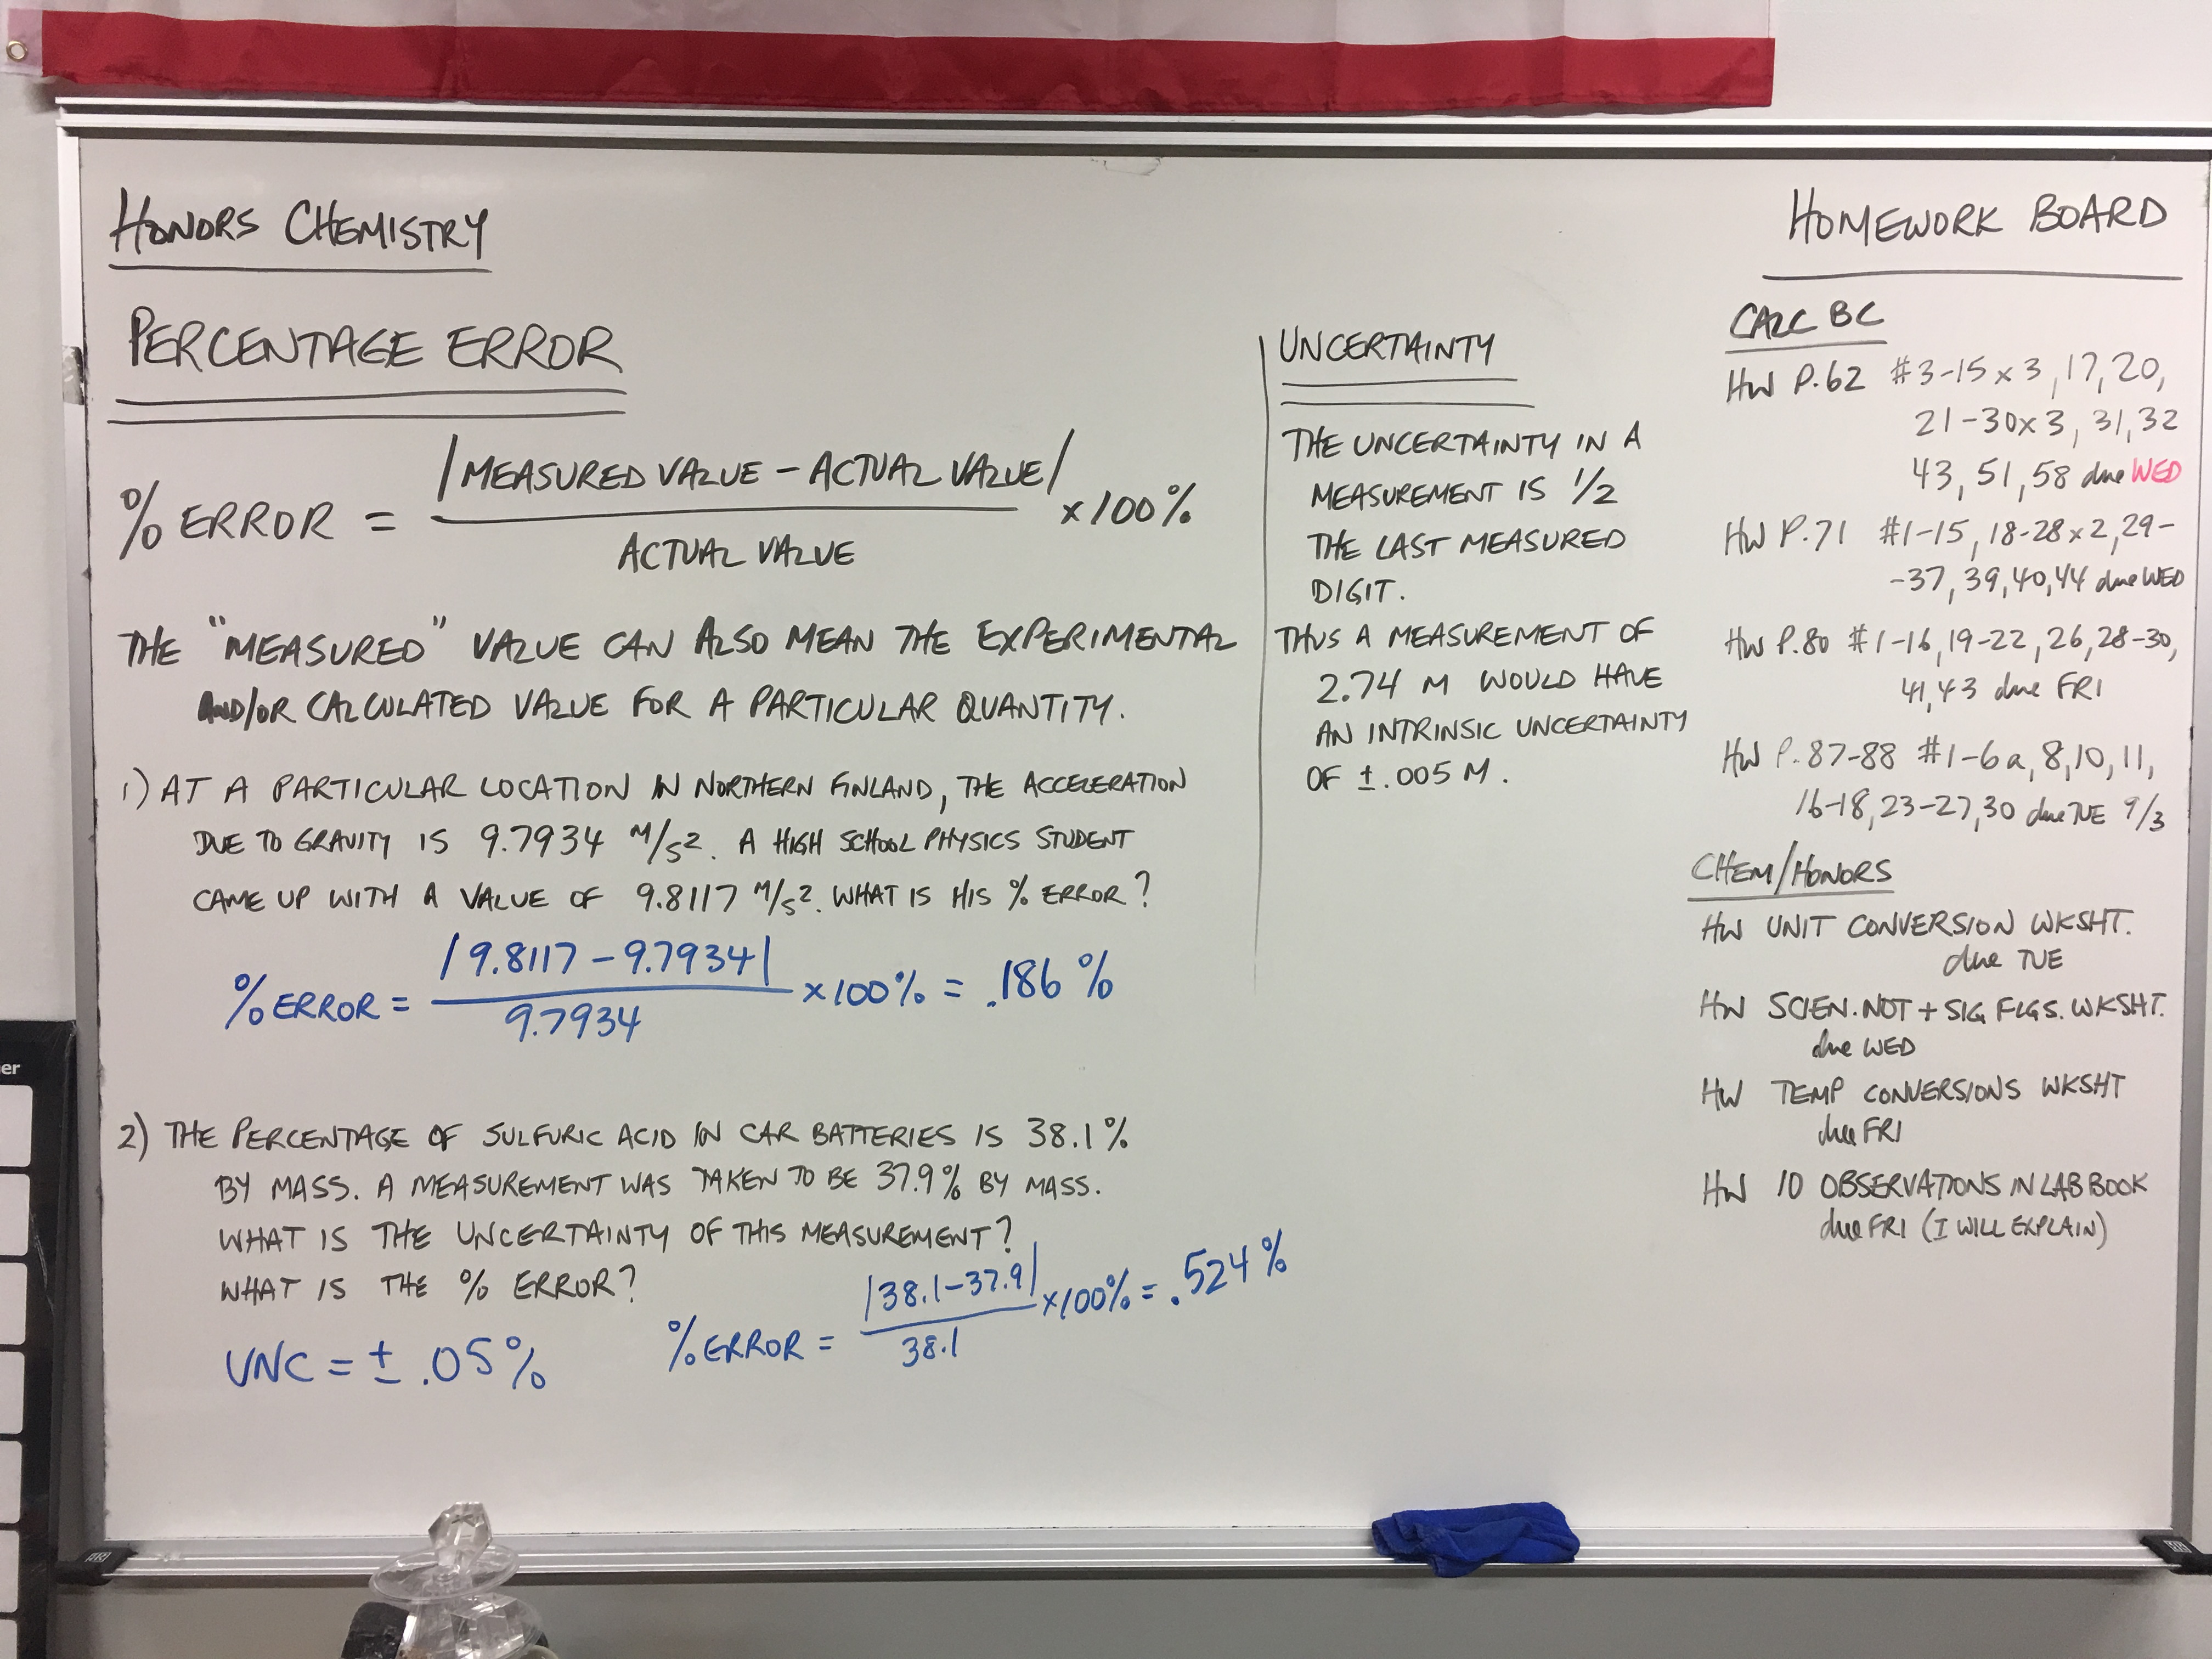 HONORS CHEMISTRY
PERCENTAGE ERROR
% ERROR = |MEASURED VALUE - ACTUAL VALUE| / ACTUAL VALUE x 100%
THE "MEASURED" VALUE CAN ALSO MEAN THE EXPERIMENTAL
AND/OR CALCULATED VALUE FOR A PARTICULAR QUANTITY.
1) AT A PARTICULAR LOCATION IN NORTHERN FINLAND, THE ACCELERATION
DUE TO GRAVITY IS 9.7934 M/S². A HIGH SCHOOL PHYSICS STUDENT
CAME UP WITH A VALUE OF 9.8117 M/S². WHAT IS HIS % ERROR?
% ERROR = |9.8117 - 9.7934| / 9.7934 x 100% = .186 %
2) THE PERCENTAGE OF SULFURIC ACID IN CAR BATTERIES IS 38.1%
BY MASS. A MEASUREMENT WAS TAKEN TO BE 37.9% BY MASS.
WHAT IS THE UNCERTAINTY OF THIS MEASUREMENT?
WHAT IS THE % ERROR?
UNC = ± .05%
% ERROR = |38.1-37.9| / 38.1 x100% = .524%
UNCERTAINTY
THE UNCERTAINTY IN A
MEASUREMENT IS 1/2
THE LAST MEASURED
DIGIT.
THUS A MEASUREMENT OF
2.74 M WOULD HAVE
AN INTRINSIC UNCERTAINTY
OF ± .005 M.
HOMEWORK BOARD
CALC BC
HW P.62 #3-15 x 3, 17, 20,
21-30x3, 31, 32
43, 51, 58 due WED
HW P.71 #1-15, 18-28 x 2, 29-
-37, 39, 40, 44 due WED
HW P.80 #1-16, 19-22, 26, 28-30,
41, 43 due FRI
HW P.87-88 #1-6a, 8, 10, 11,
16-18, 23-27, 30 due TUE 9/3
CHEM/HONORS
HW UNIT CONVERSION WKSHT.
due TUE
HW SCIEN. NOT + SIG FIGS. WKSHT.
due WED
HW TEMP CONVERSIONS WKSHT
due FRI
HW 10 OBSERVATIONS IN LAB BOOK
due FRI (I WILL EXPLAIN)
er